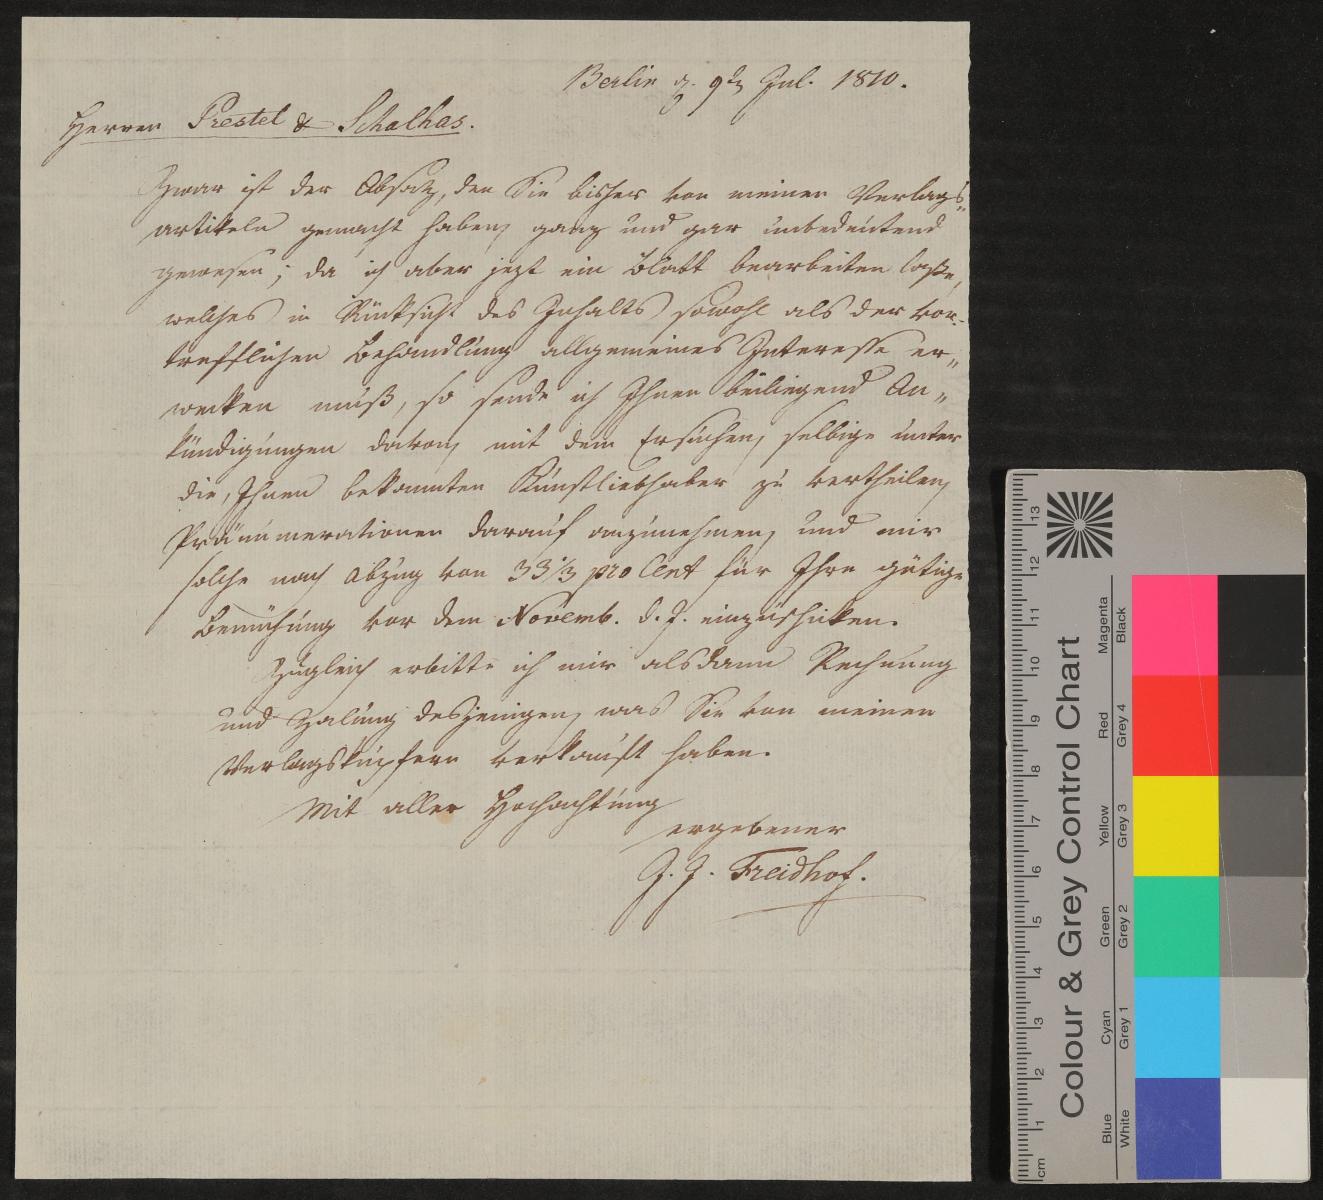 Berlin d. 9t Jul. 1810.
Herren Prestel & Schalhas.
Zwar ist der Absatz, den Sie bisher von meinen Verlags-
artikeln gemacht haben, ganz und gar unbedeutend
gewesen; da ich aber jezt ein Blatt bearbeiten laße,
welches in Rücksicht des Inhalts sowohl als der vor-
trefflichen Behandlung allgemeines Interesse er-
wecken muß, so sende ich Ihnen beiliegend An-
kündigungen davon, mit dem Ersuchen, selbige unter
die, Ihnen bekannten Kunstliebhaber zu vertheilen,
Pränumerationen darauf anzunehmen, und mir
solche nach Abzug von 33 1/3 pro Cent für Ihre gütige
Bemühung vor dem Novemb. d. J. einzuschicken.
Zugleich erbitte ich mir alsdann Rechnung
und Zalung desjenigen, was Sie von meinen
Verlagskupfern verkauft haben.
Mit aller Hochachtung
ergebener
J. J. Freidhof.
13
12
11
10
9
8
7
6
5
4
3
2
1
cm
Colour & Grey Control Chart
Blue Cyan Green Yellow Red Magenta
White Grey 1 Grey 2 Grey 3 Grey 4 Black